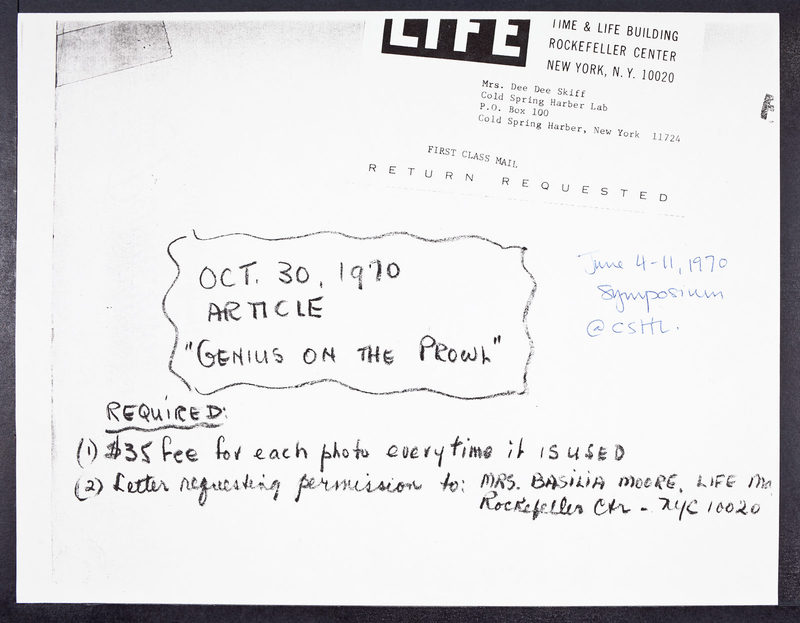 LIFE
TIME & LIFE BUILDING
ROCKEFELLER CENTER
NEW YORK, N. Y. 10020
Mrs. Dee Dee Skiff
Cold Spring Harber Lab
P.O. Box 100
Cold Spring Harber, New York 11724
FIRST CLASS MAIL
RETURN REQUESTED
OCT. 30, 1970
ARTICLE
"GENIUS ON THE PROWL"
June 4-11, 1970
Symposium
@ CSHL.
REQUIRED:
(1) $35 fee for each photo everytime it IS USED
(2) Letter requesting permission to: MRS. BASILIA MOORE, LIFE
Rockefeller Ctr - NYC 10020